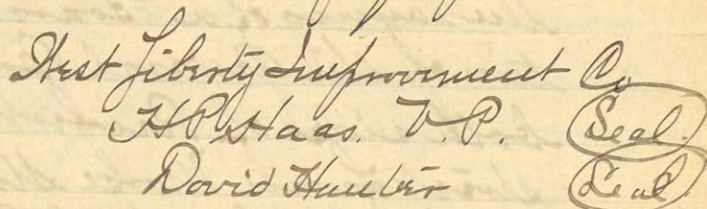 West Liberty Improvement Co
H P Haas. V. P. (Seal.)
David Hunter (Seal)